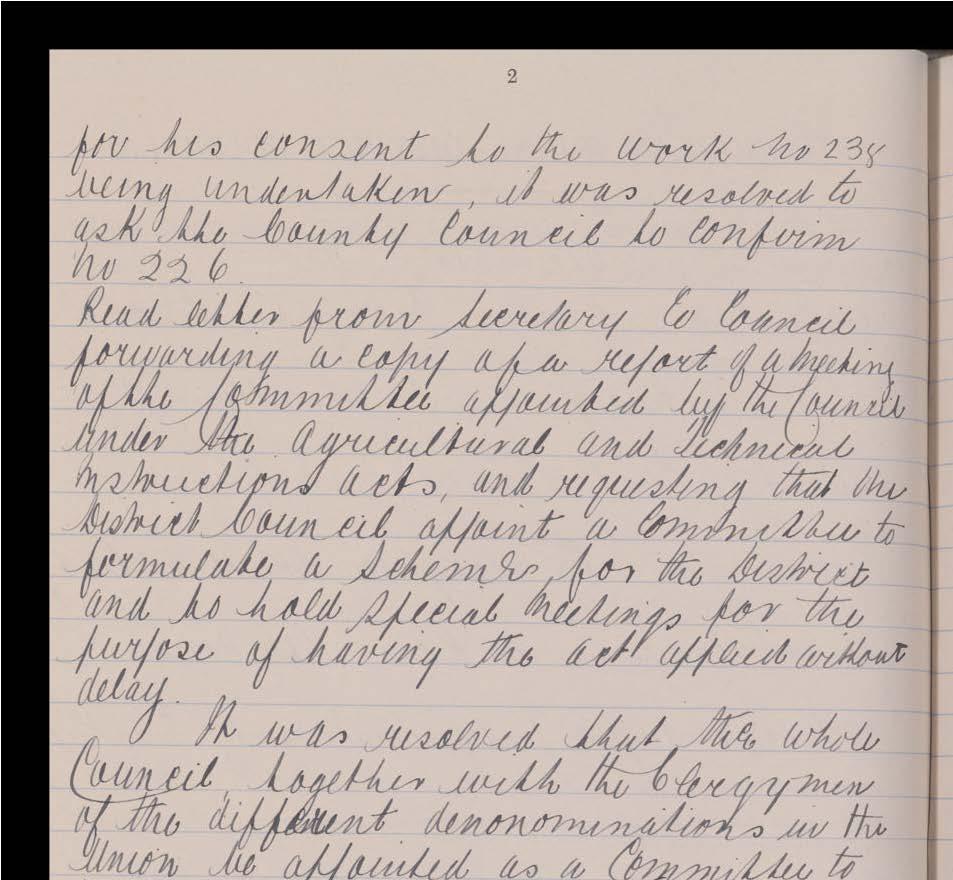 2
for his consent to the work No 238
being undertaken, it was resolved to
ask the County Council to confirm
No 226.
Read letter from Secretary Co Council
forwarding a copy of a report of a Meeting
of the Committee appointed by the Council
under the Agricultural and Technical
Instructions Acts, and requesting that the
District Council appoint a Committee to
formulate a Scheme for the District
and to hold Special Meetings for the
purpose of having the act applied without
delay.
It was resolved that the whole
Council, together with the Clergymen
of the different denonominations in the
Union be appointed as a Committee to